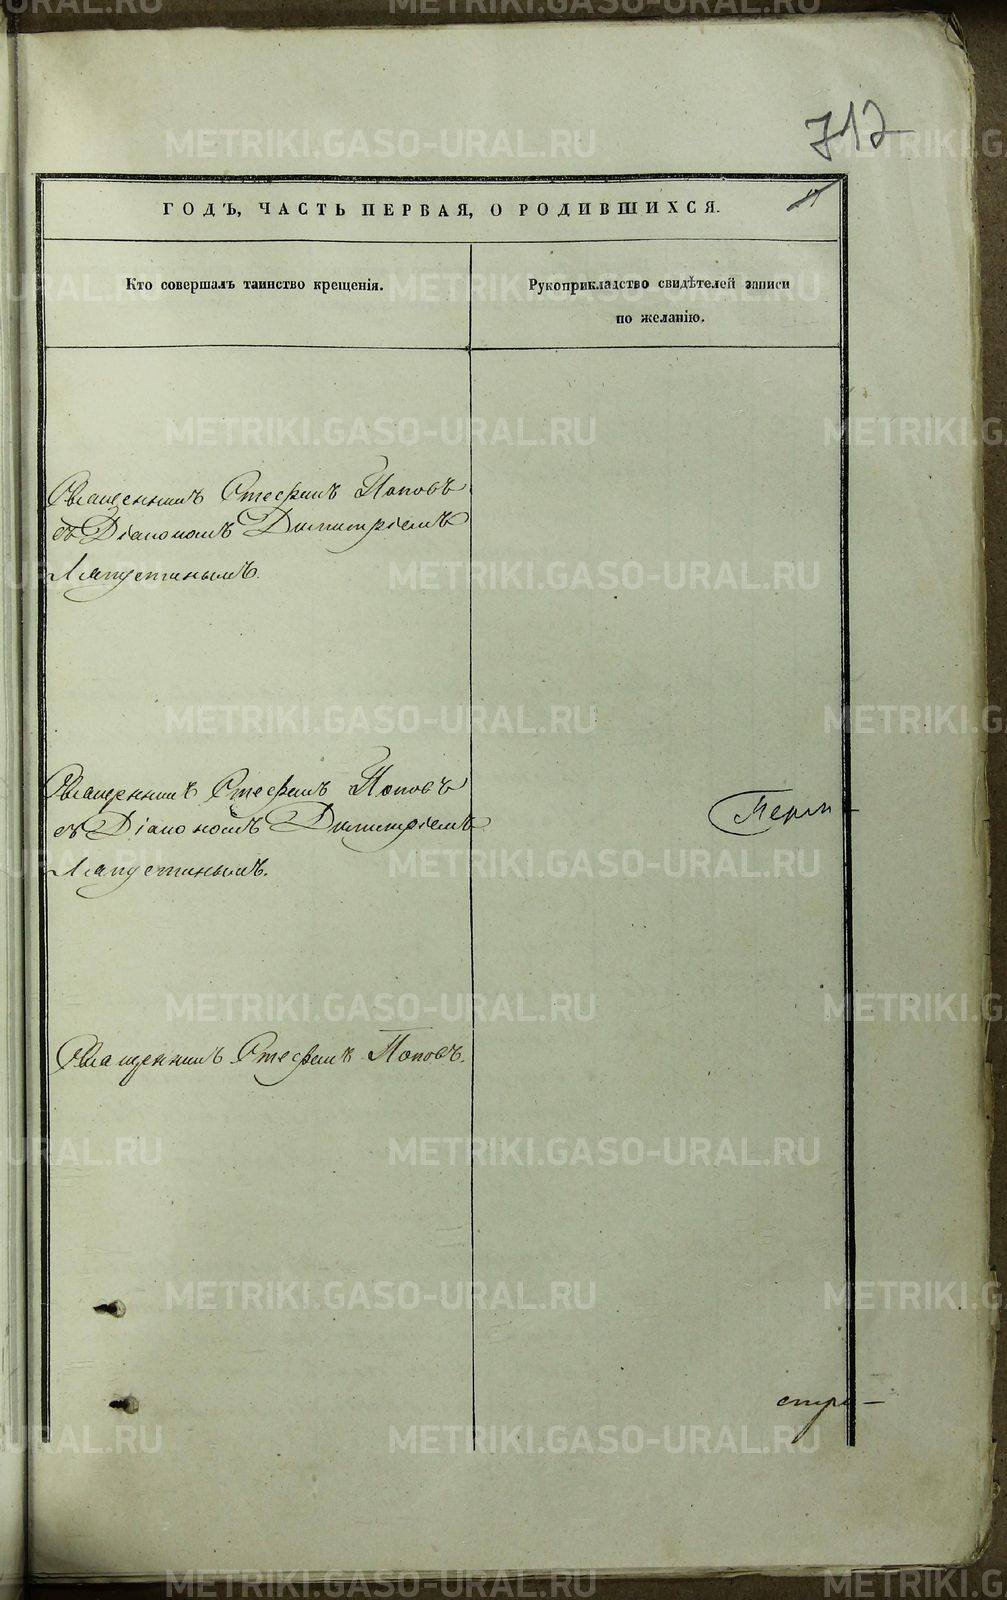 712
ГОДЪ, ЧАСТЬ ПЕРВАЯ, О РОДИВШИХСЯ.
Кто совершалъ таинство крещенія.
Рукоприкладство свидѣтелей записи
по желанію.
Священникъ Стефанъ Поповъ
съ Діакономъ Димитріемъ
Ляпустинымъ.
Священникъ Стефанъ Поповъ
съ Діакономъ Димитріемъ
Ляпустинымъ.
Священникъ Стефанъ Поповъ.
METRIKI.GASO-URAL.RU